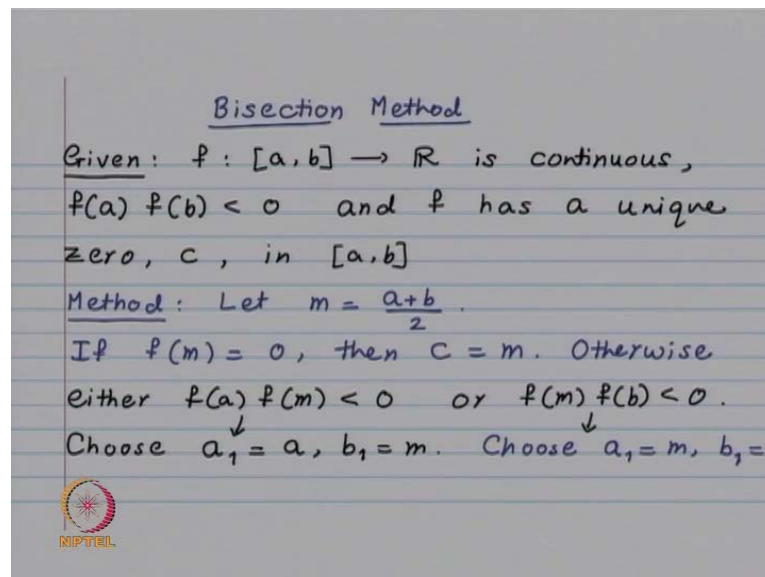 Bisection Method
Given: f: [a,b] → R is continuous,
f(a) f(b) < 0 and f has a unique
zero, c, in [a,b]
Method: Let m = a+b/2.
If f(m) = 0, then c = m. Otherwise
either f(a) f(m) < 0 or f(m) f(b) < 0.
↓ ↓
Choose a₁ = a, b₁ = m. Choose a₁ = m, b₁ =
NPTEL